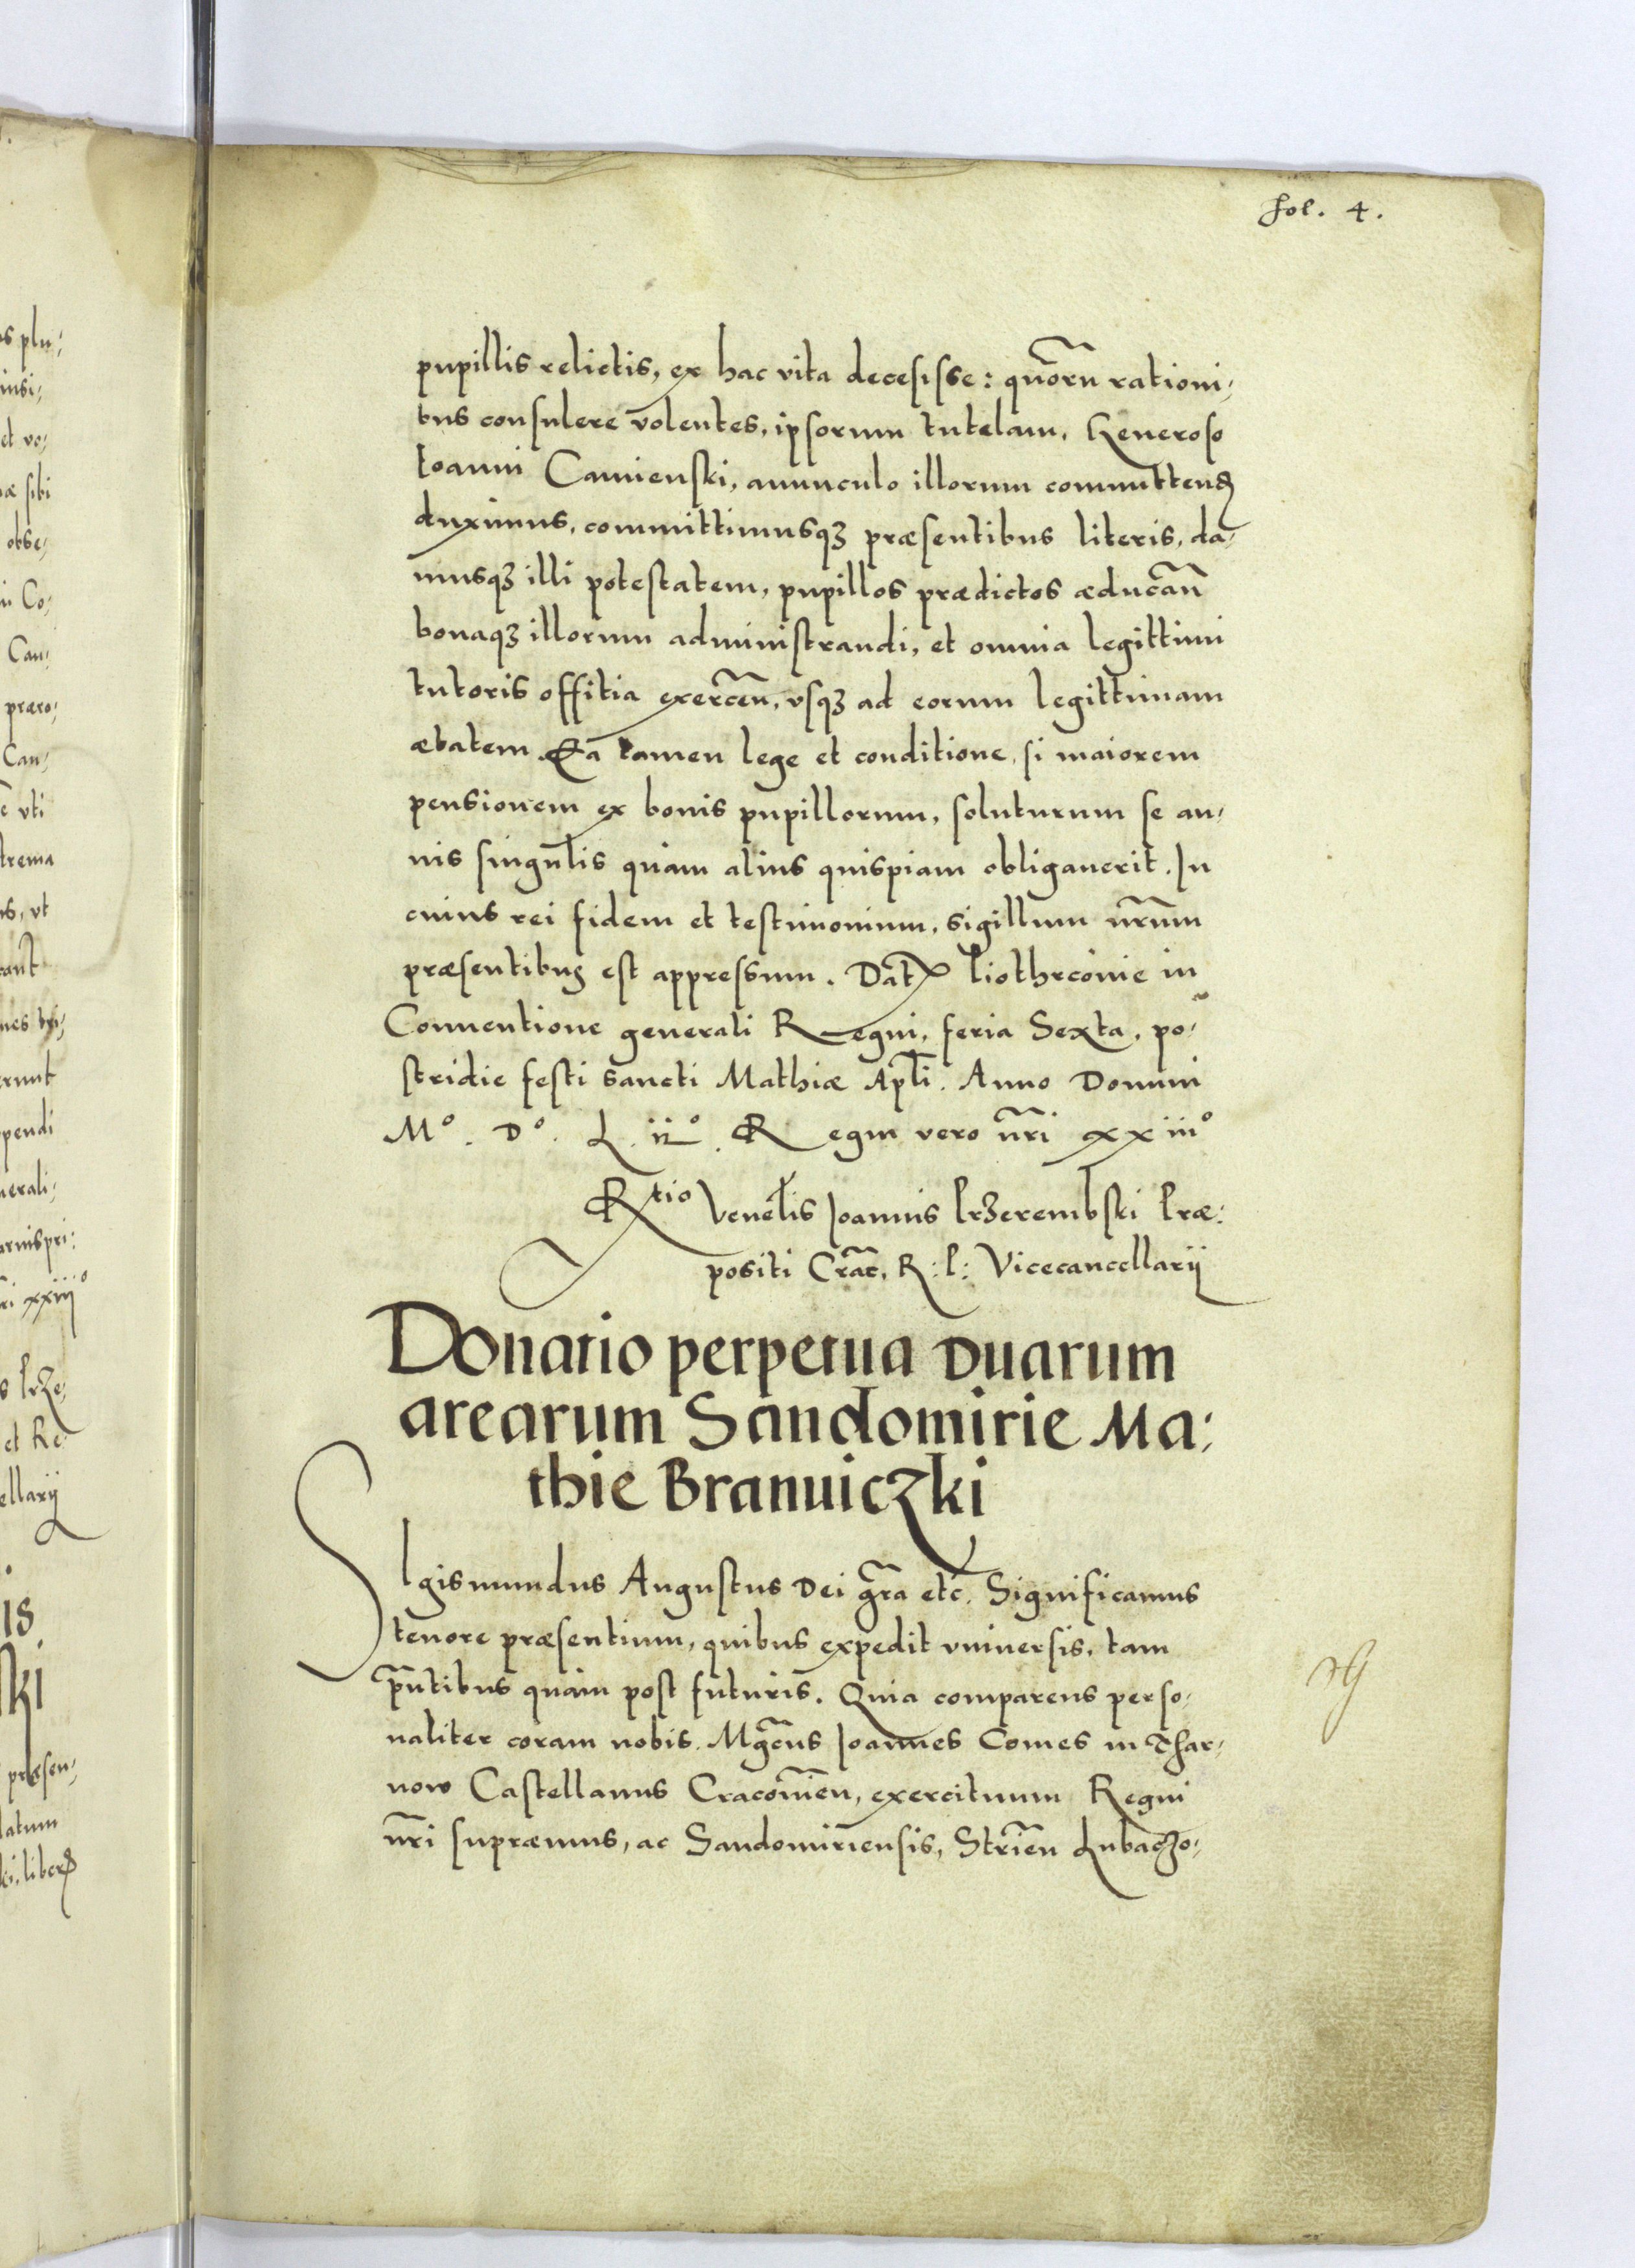 fol. 4.
pupillis relictis, ex hac vita decesisse: quorũ rationi,
bus consulere volentes, ipsorum tutelam, Generoso
Ioanni Camienski, auunculo illorum committend
duximus, committimusqꝫ præsentibus literis, da,
musqꝫ illi potestatem, pupillos prædictos æducañ
bonaqꝫ illorum administrandi, et omnia legittimi
tutoris offitia exerceñ, vsqꝫ ad eorum legittimam
ætatem. Ea tamen lege et conditione, si maiorem
pensionem ex bonis pupillorum, soluturum se an,
nis singulis quam alius quispiam obligauerit. In
cuius rei fidem et testimonium, sigillum nr̃um
præsentibus est appressum. Dat Piothrcouie in
Conuentione generali Regni, feria Sexta, po,
stridie festi sancti Mathiæ Apl̃i. Anno Domini
Mº. Dº. L. iiº. Regni vero nr̃i xxiiiº
Rtio Venel̃is Ioannis Przerembski Præ:
positi Crac̃, R: P: Vicecancellarij
Donatio perpetua duarum
arearum Sandomirie Ma:
thie Branuiczki
SIgismundus Augustus Dei gr̃a etc̃. Significamus
tenore præsentium, quibus expedit vniuersis, tam
p̃ntibus quam post futuris. Quia comparens perso,
naliter coram nobis. Mgc̃us Ioannes Comes in Thar,
now Castellanus Cracouieñ, exercituum Regni
nr̃i supræmus, ac Sandomiriensis, Strieñ Lubaczo,